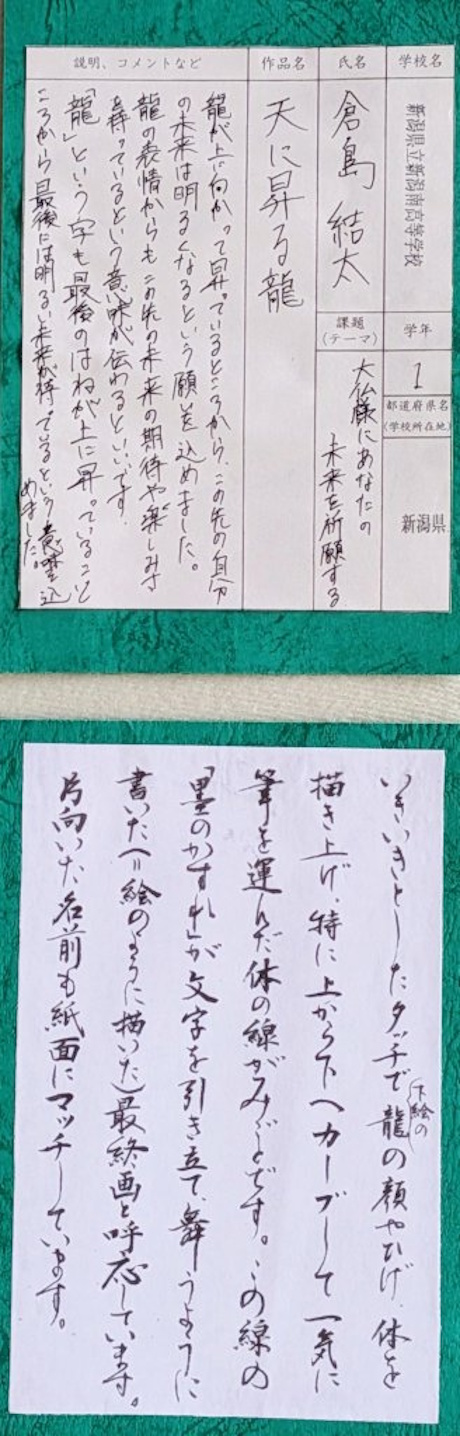 学校名
新潟県立新潟南高等学校
学年
1
都道府県名
(学校所在地)
新潟県
氏名
倉島 結太
課題
(テーマ)
大仏様にあなたの
未来を祈願する
作品名
天に昇る龍
説明、コメントなど
龍が上に向かって昇っているところから、この先の自分
の未来は明るくなるという願いを込めました。
龍の表情からもこの先の未来の期待や楽しみさ
を持っているという意味が伝わるといいです。
「龍」という字も最後のはねが上に昇っていると
ころから最後には明るい未来が待っているという意味を込
めました。
いきいきとしたタッチで下絵の龍の顔やひげ、体を
描き上げ、特に上から下へカーブして一気に
筆を運んだ体の線がみごとです。この線の
「墨のかすれ」が文字を引き立て、舞うように
書いた(=絵のように描いた)最終画と呼応しています。
片向いた名前も紙面にマッチしています。